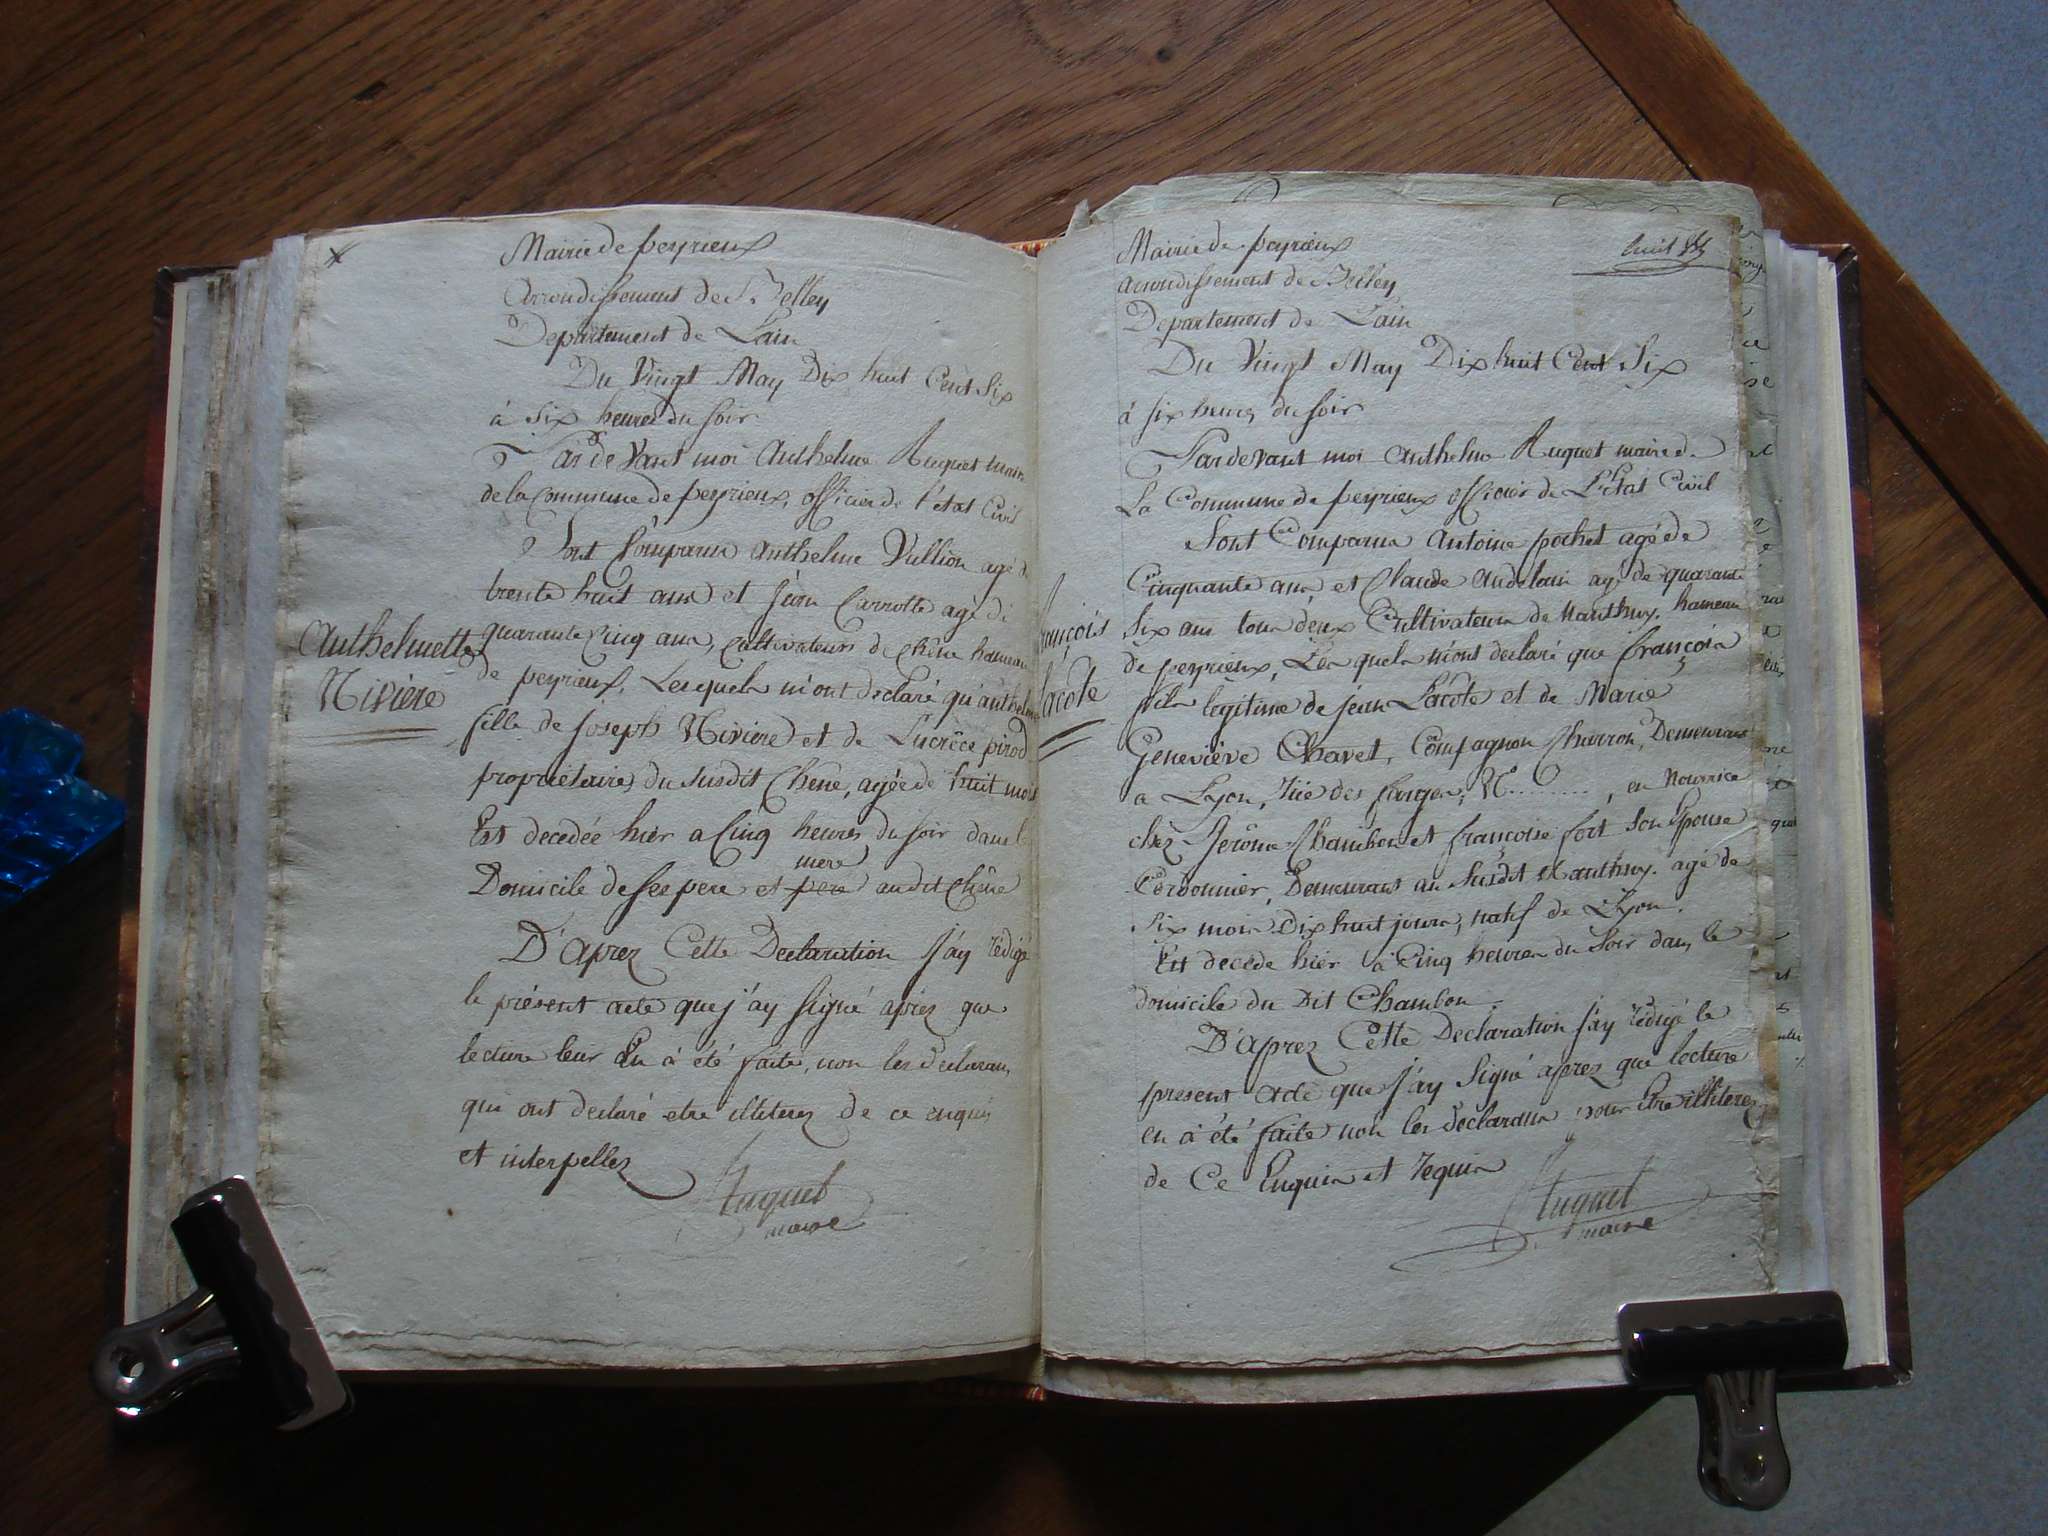 Mairie de peyrieux
Arrondissement de Belley
Departement de Lain
Du Vingt May Dix huit Cent Six
à Six heures du soir
Par de Vant moi Anthelme Huguet maire
de la Commune de peyrieux, officier de l'état Civil
Sont Comparus Anthelme Vullion agé de
trente huit ans et jean Carrotte agé de
quarante Cinq ans, Cultivateurs de Chêne hameau
de peyrieux, Lesquels m'ont declaré qu'anthelme
fille de joseph Nivière et de Lucrêce pirod
propriétaires du susdit Chêne, agée de huit mois
Est decedée hier a Cinq heures du soir dans le
mere
Domicile de ses pere et pere au dit Chêne
D'aprez Cette Declaration j'ay rédigé
le présent acte que j'ay signé aprez que
lecture leur En à été faite, non les declarans
qui ont declaré etre illiterez de ce enquis
et interpellez
Huguet
maire
Anthelmette
Nivière
Mairie de peyrieux
arrondissement de Belley
Departement de Lain
Du Vingt May Dix huit Cent Six
à six heures du soir
Pardevant moi anthelme Huguet maire de
La Commune de peyrieux officier de L'état Civil
Sont Comparus Antoine pochet agé de
Cinquante ans, et Claude andelain agé de quarante
Six ans tous deux Cultivateurs de Nanthuy. hameau
de peyrieux, Les quels m'ont declaré que françois
fils legitime de jean Lacôte et de Marie
Geneviève Chavet, Compagnon Charron, Demeurans
a Lyon, rüe des farges, N°........, en Nourrice
chez Jerôme Chambon et françoise fort son Epouse
Cordonnier, Demeurans au Susdit Nanthuy. agé de
Six mois Dix huit jours, natif de Lyon.
Est decedé hier à Cinq heures du Soir dans le
domicile du Dit Chambon.
D'aprez Cette Declaration j'ay rédigé le
present acte que j'ay signé aprez que lecture
en à été faite non les declarans pour être illiterez
de Ce Enquis et requis
Huguet
maire
françois
Lacôte
huit